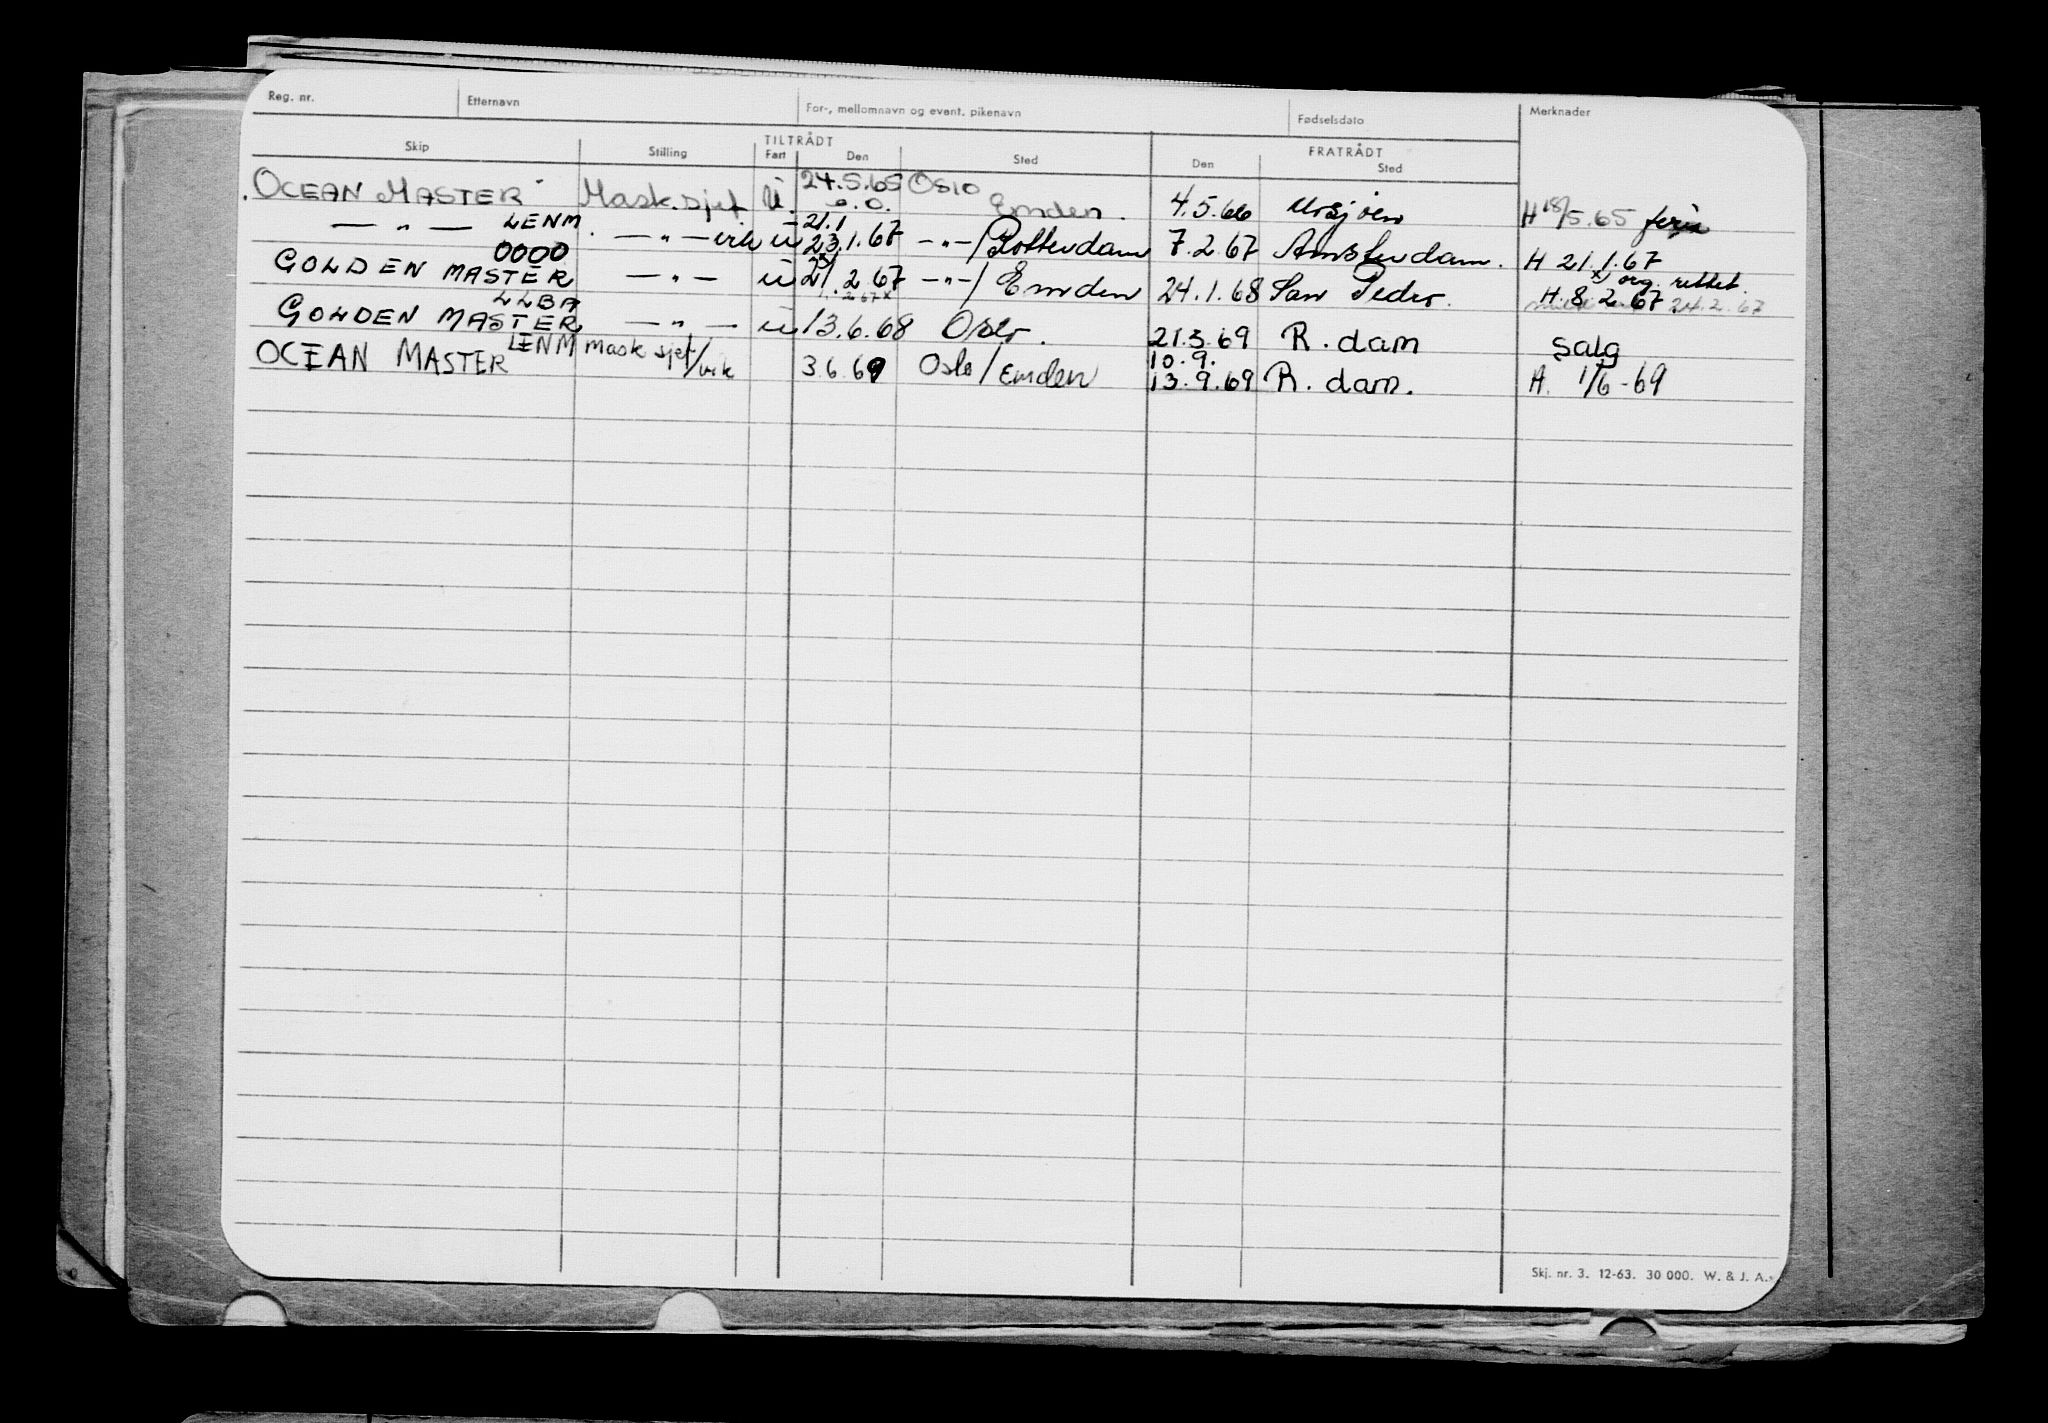 Reg. nr. Etternavn For-, mellomnavn og event. pikenavn Fødselsdato Merknader
TILTRÅDT FRATRÅDT
Skip Stilling Fart Den Sted Den Sted
OCEAN MASTER Mask.sjef U. 24.5.65 Oslo Emden. 4.5.66 Mosjøen H 18/5.65 ferie
— " — LENM — " — vik u 21.1 23.1.67 — " —/Rotterdam 7.2.67 Amsterdam. H 21.1.67
GOLDEN MASTER 0000 — " — u 21.2.67 — " —/Emden 24.1.68 San Pedro. H. 8.2.67 x) org. rettet. 24.2.67
GOLDEN MASTER LLBA — " — u 13.6.68 Oslo. 21.3.69 R.dam Salg
OCEAN MASTER LENM mask sjef/vik 3.6.69 Oslo/Emden 10.9. 13.9.69 R.dam. A. 1/6-69
Skj. nr. 3. 12-63. 30 000. W. & J. A.